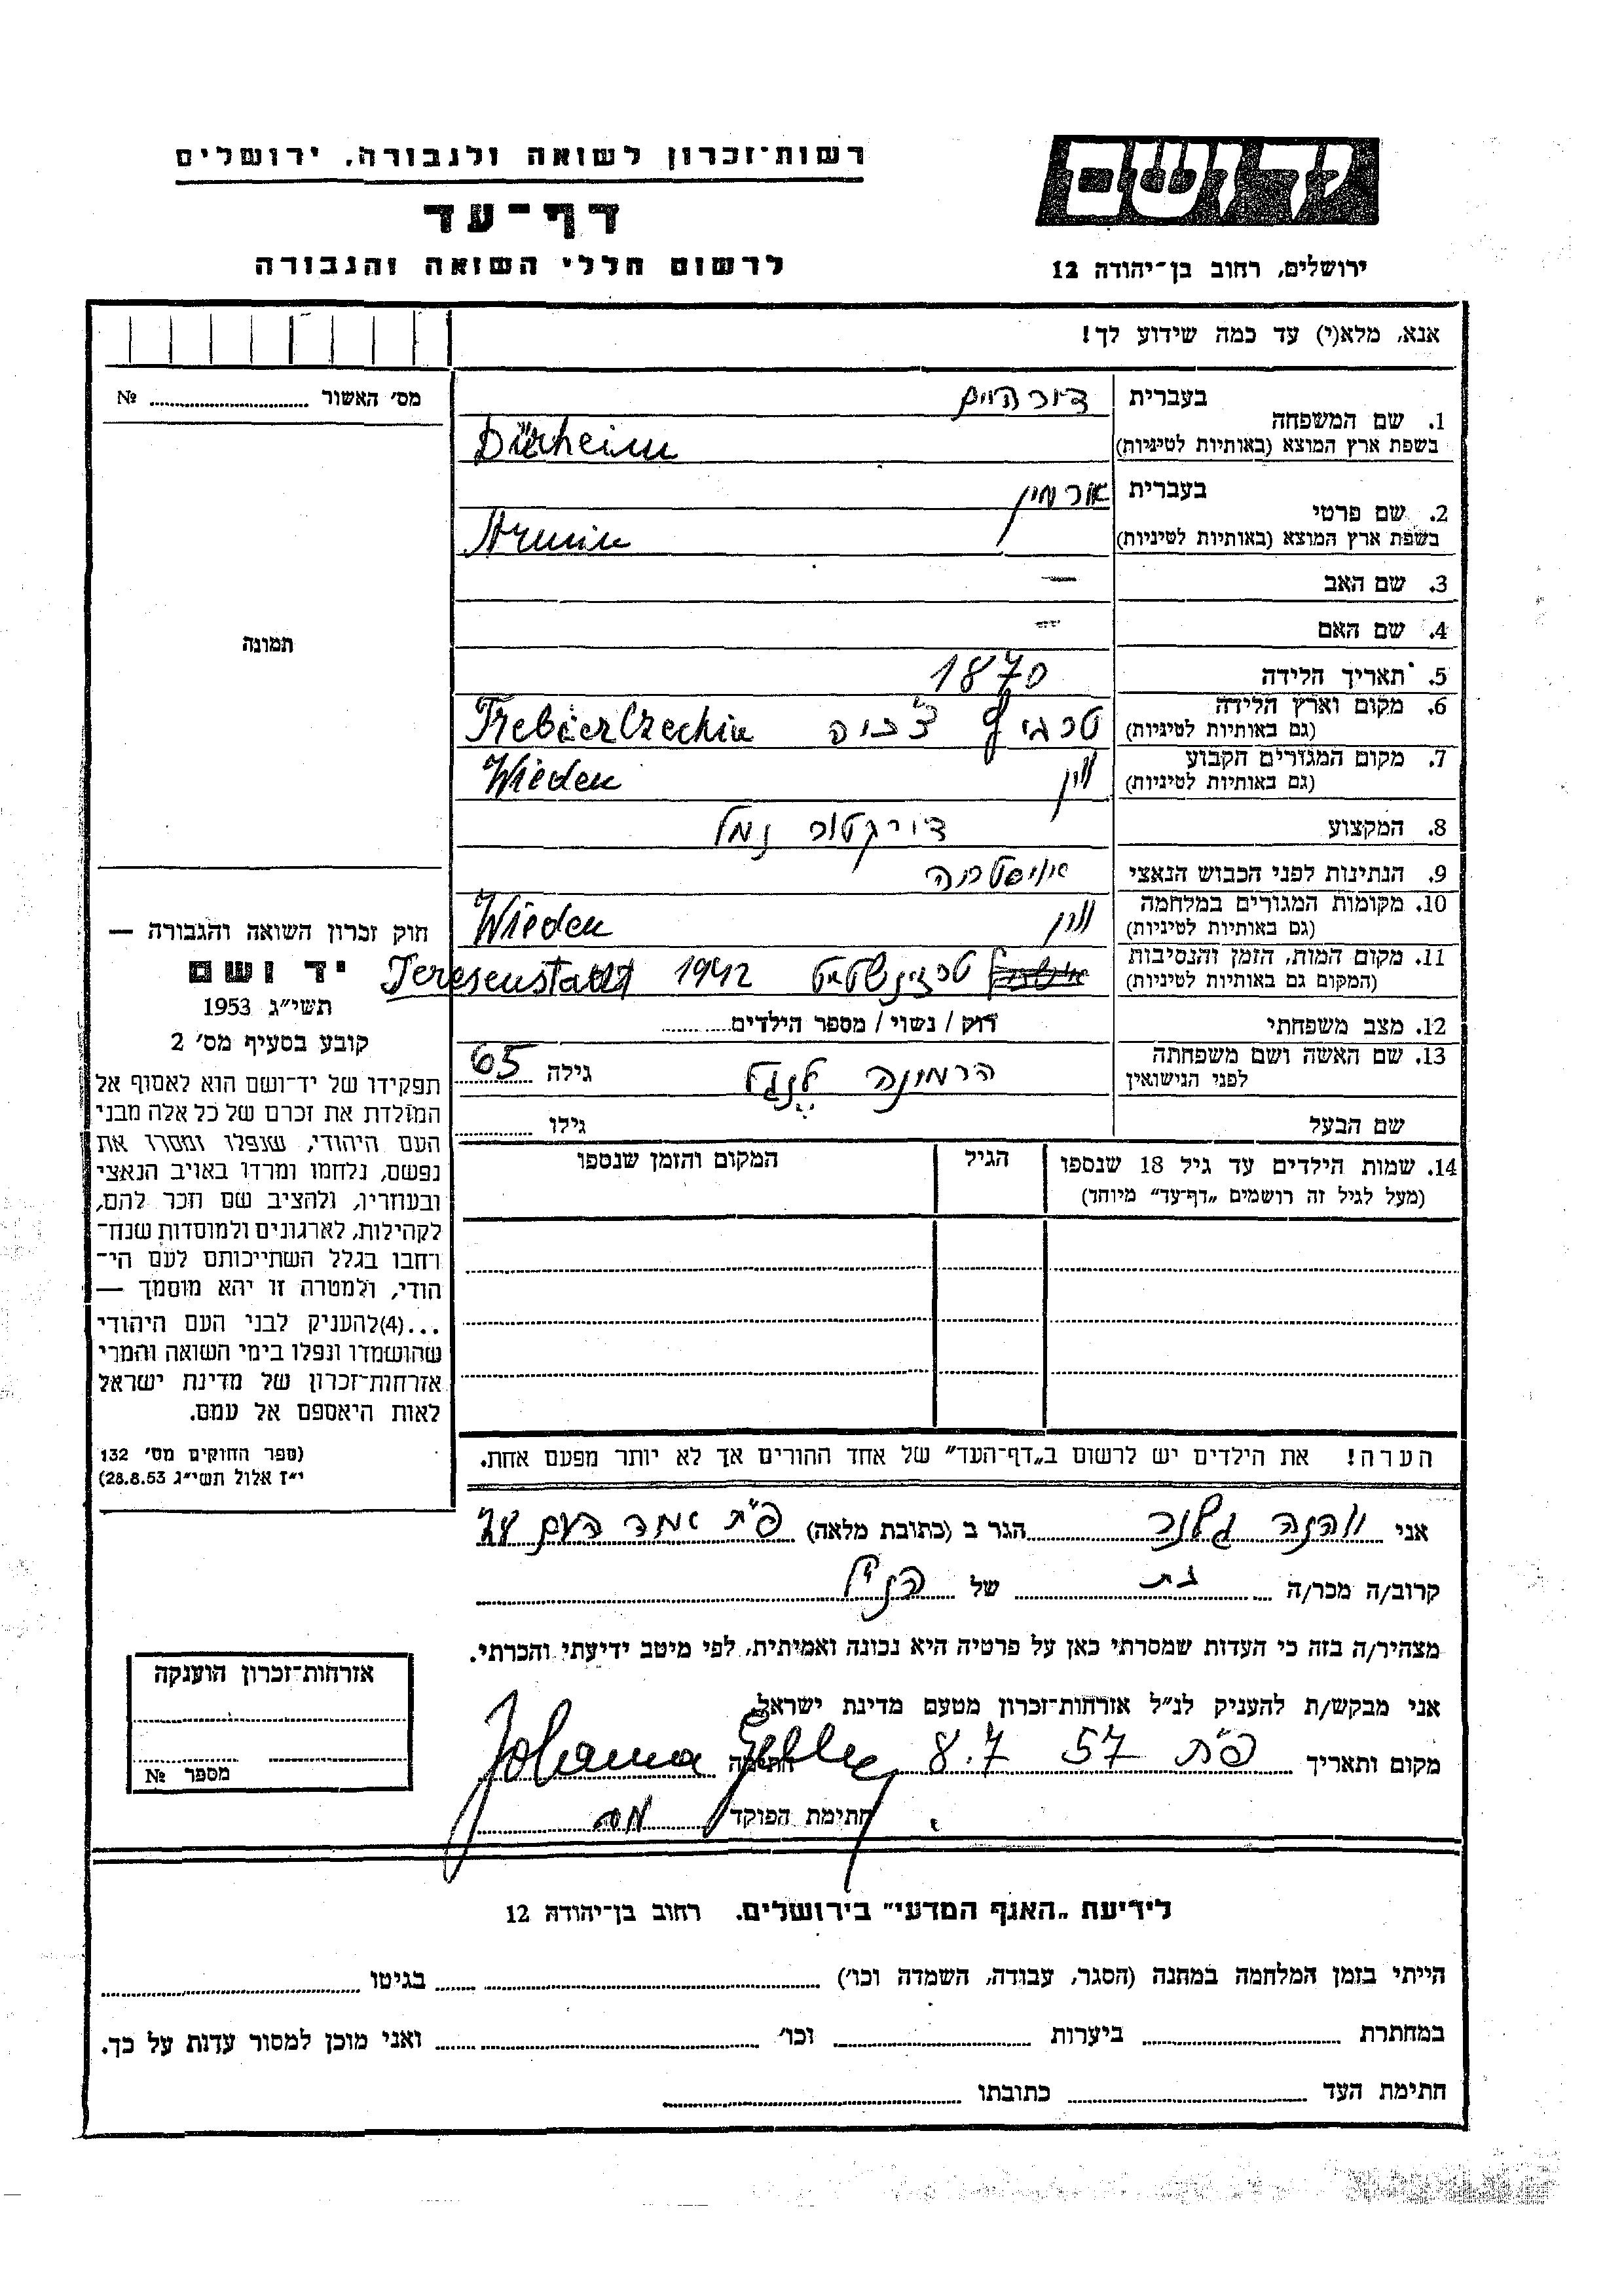 רשות־זכרון לשואה ולגבורה, ירושלים
יד ושם
דף־עד
לרשום חללי השואה והגבורה
ירושלים, רחוב בן־יהודה 12
אנא, מלא(י) עד כמה שידוע לך!
מס׳ האשור № 
1. שם המשפחה
בעברית דורהיים
בשפת ארץ המוצא (באותיות לטיניות) Dürheim
2. שם פרטי
בעברית ארמין
בשפת ארץ המוצא (באותיות לטיניות) Armin
3. שם האב —
4. שם האם —
5. תאריך הלידה 1870
6. מקום וארץ הלידה
(גם באותיות לטיניות) צ'כיה
7. מקום המגורים הקבוע
(גם באותיות לטיניות) וין Wieden
8. המקצוע דירקטור
9. הנתינות לפני הכבוש הנאצי אוסטריה
10. מקומות המגורים במלחמה
(גם באותיות לטיניות) וין Wieden
11. מקום המות, הזמן והנסיבות
(המקום גם באותיות לטיניות) טרזינשטט 1942 Teresenstadt
12. מצב משפחתי רוק / נשוי / מספר הילדים
13. שם האשה ושם משפחתה
לפני הנישואין הרמינה גילה 65
שם הבעל גילו
14. שמות הילדים עד גיל 18 שנספו
(מעל לגיל זה רושמים „דף־עד״ מיוחד)
הגיל
המקום והזמן שנספו
תמונה
חוק זכרון השואה והגבורה —
יד ושם
תשי״ג 1953
קובע בסעיף מס׳ 2
תפקידו של יד־ושם הוא לאסוף אל
המולדת את זכרם של כל אלה מבני
העם היהודי, שנפלו ומסרו את
נפשם, נלחמו ומרדו באויב הנאצי
ובעוזריו, ולהציב שם וזכר להם,
לקהילות, לארגונים ולמוסדות שנח־
רחבו בגלל השתייכותם לעם הי־
הודי, ולמטרה זו יהא מוסמך —
...(4)להעניק לבני העם היהודי
שהושמדו ונפלו בימי השואה והמרי
אזרחות־זכרון של מדינת ישראל
לאות היאספם אל עמם.
(ספר החוקים מס׳ 132
י״ז אלול תשי״ג 28.8.53)
הערה! את הילדים יש לרשום ב„דף־העד״ של אחד ההורים אך לא יותר מפעם אחת.
אני יוהנה גלנר הגר ב (כתובת מלאה) פ"ת אחד העם
קרוב/ה מכר/ה בת של הנ"ל
מצהיר/ה בזה כי העדות שמסרתי כאן על פרטיה היא נכונה ואמיתית, לפי מיטב ידיעתי והכרתי.
אני מבקש/ת להעניק לנ״ל אזרחות־זכרון מטעם מדינת ישראל
מקום ותאריך פ"ת 8.7 57 חתימה Johanna
חתימת הפוקד
אזרחות־זכרון הוענקה
מספר №
לידיעת „האגף המדעי״ בירושלים, רחוב בן־יהודה 12
הייתי בזמן המלחמה במחנה (הסגר, עבודה, השמדה וכו׳) בגיטו
במחתרת ביערות וכו׳ ואני מוכן למסור עדות על כך.
חתימת העד כתובתו